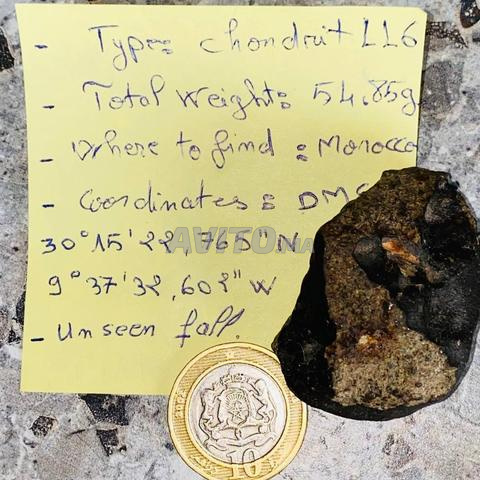 - Type: chondrit LL6
- Total Weight: 54,85g
- Where to find : Morocco
- Coordinates : DMS
30°15'22,765"N
AVITO.MA
9°37'32,602"W
- Unseen fall.
10